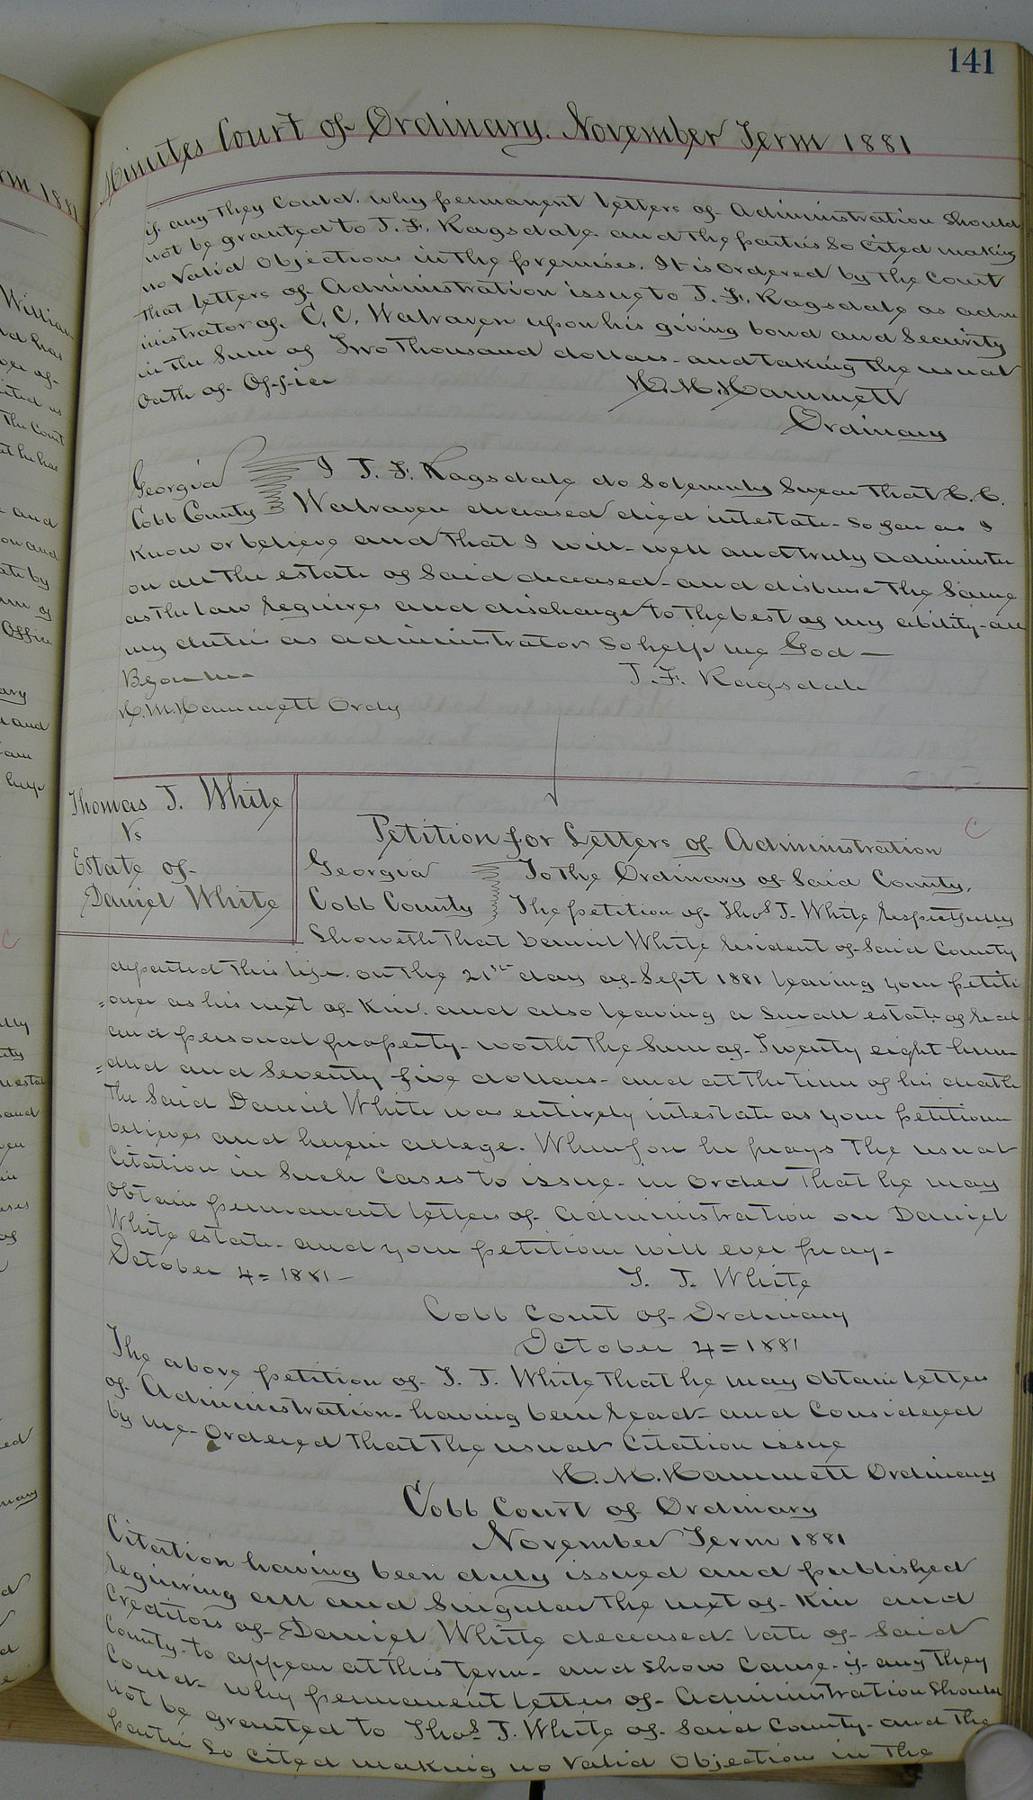 141
Minutes Court of Ordinary. November Term 1881
if any they Could. why permanent letters of Administration Should
not be granted to J. F. Ragsdale and the parties So Cited making
no Valid Objections in the premises. It is Ordered by the Court
that letters of Administration issue to J. F. Ragsdale as adm
inistrator of C. C. Walraven upon his giving bond and Security
in the Sum of Two Thousand dollars - and taking the usual
Oath of Office
H. M. Hammett
Ordinary
Georgia I J. F. Ragsdale do Solemnly Swear that C. C.
Cobb County Walraven deceased died intestate - So far as I
Know or believe and that I will - well and truly administer
on all the estate of Said deceased - and disburse the Same
as the law requires and discharge to the best of my ability - all
my duties as administrator So help me God —
Before me J. F. Ragsdale
H. M. Hammett Ordy
Thomas J. White
Vs
Estate of
Daniel White
Petition for Letters of Administration
C
Georgia To the Ordinary of Said County.
Cobb County The petition of Thos J. White Respectfully
Showeth that Daniel White Resident of Said County
departed this life. on the 21st day of Sept 1881 leaving your petiti
=oner as his next of Kin. and also leaving a Small estate of Real
and personal property - worth the Sum of Twenty eight hun
=dred and Seventy five dollars - and at the time of his death
the Said Daniel White was entirely intestate as your petitioner
believes and herein allege. Wherefore he prays the usual
Citation in Such Cases to issue - in Order that he may
Obtain permanent letters of administration on Daniel
White estate - and your petitioner will ever pray -
October 4 = 1881 — T. J. White
Cobb Court of Ordinary
October 4 = 1881
The above petition of T. J. White that he may obtain letters
of Administration - having been Read - and Considered
by me - Ordered that the usual Citation issue
H. M. Hammett Ordinary
Cobb Court of Ordinary
November Term 1881
Citation having been duly issued and published
Requiring all and Singular the next of Kin and
Creditors of Daniel White deceased - late of Said
County - to appear at this term - and show Cause - if any they
Could - why permanent letters of Administration Should
not be granted to Thos J. White of Said County - and the
parties So Cited making no Valid Objection in the